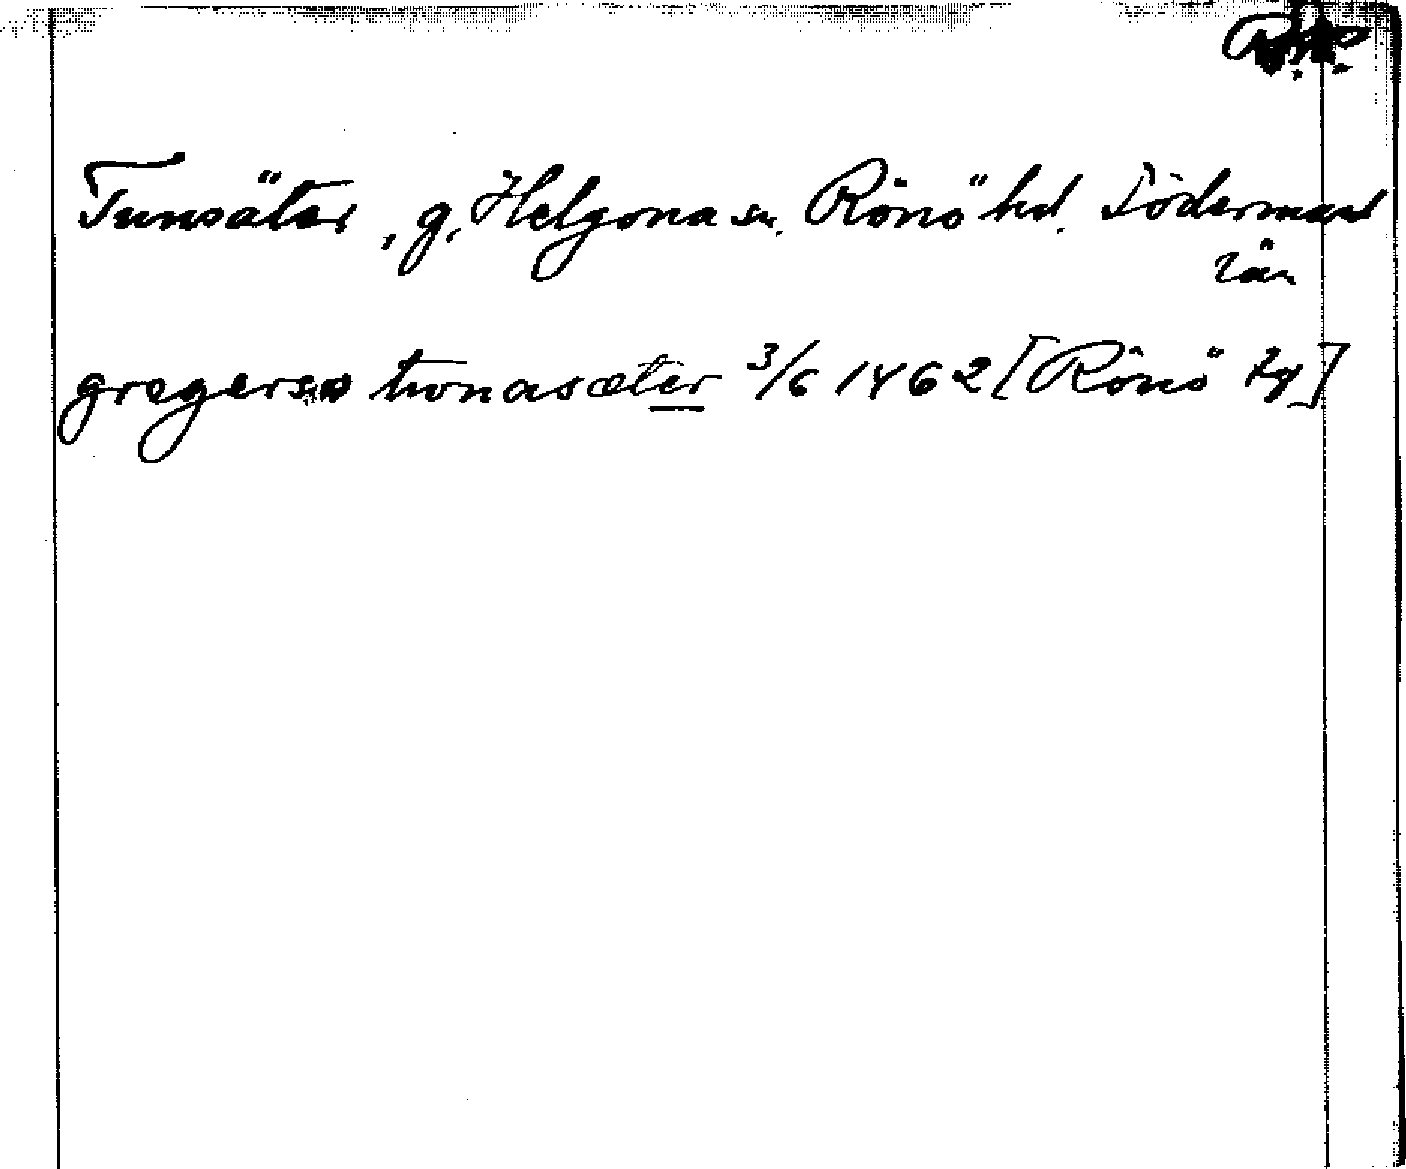 Tunsäter, g, Helgona sn. Rönö hd. Södermanl
län
gregerse tronasæter 3/6 1462 [Rönö tg]